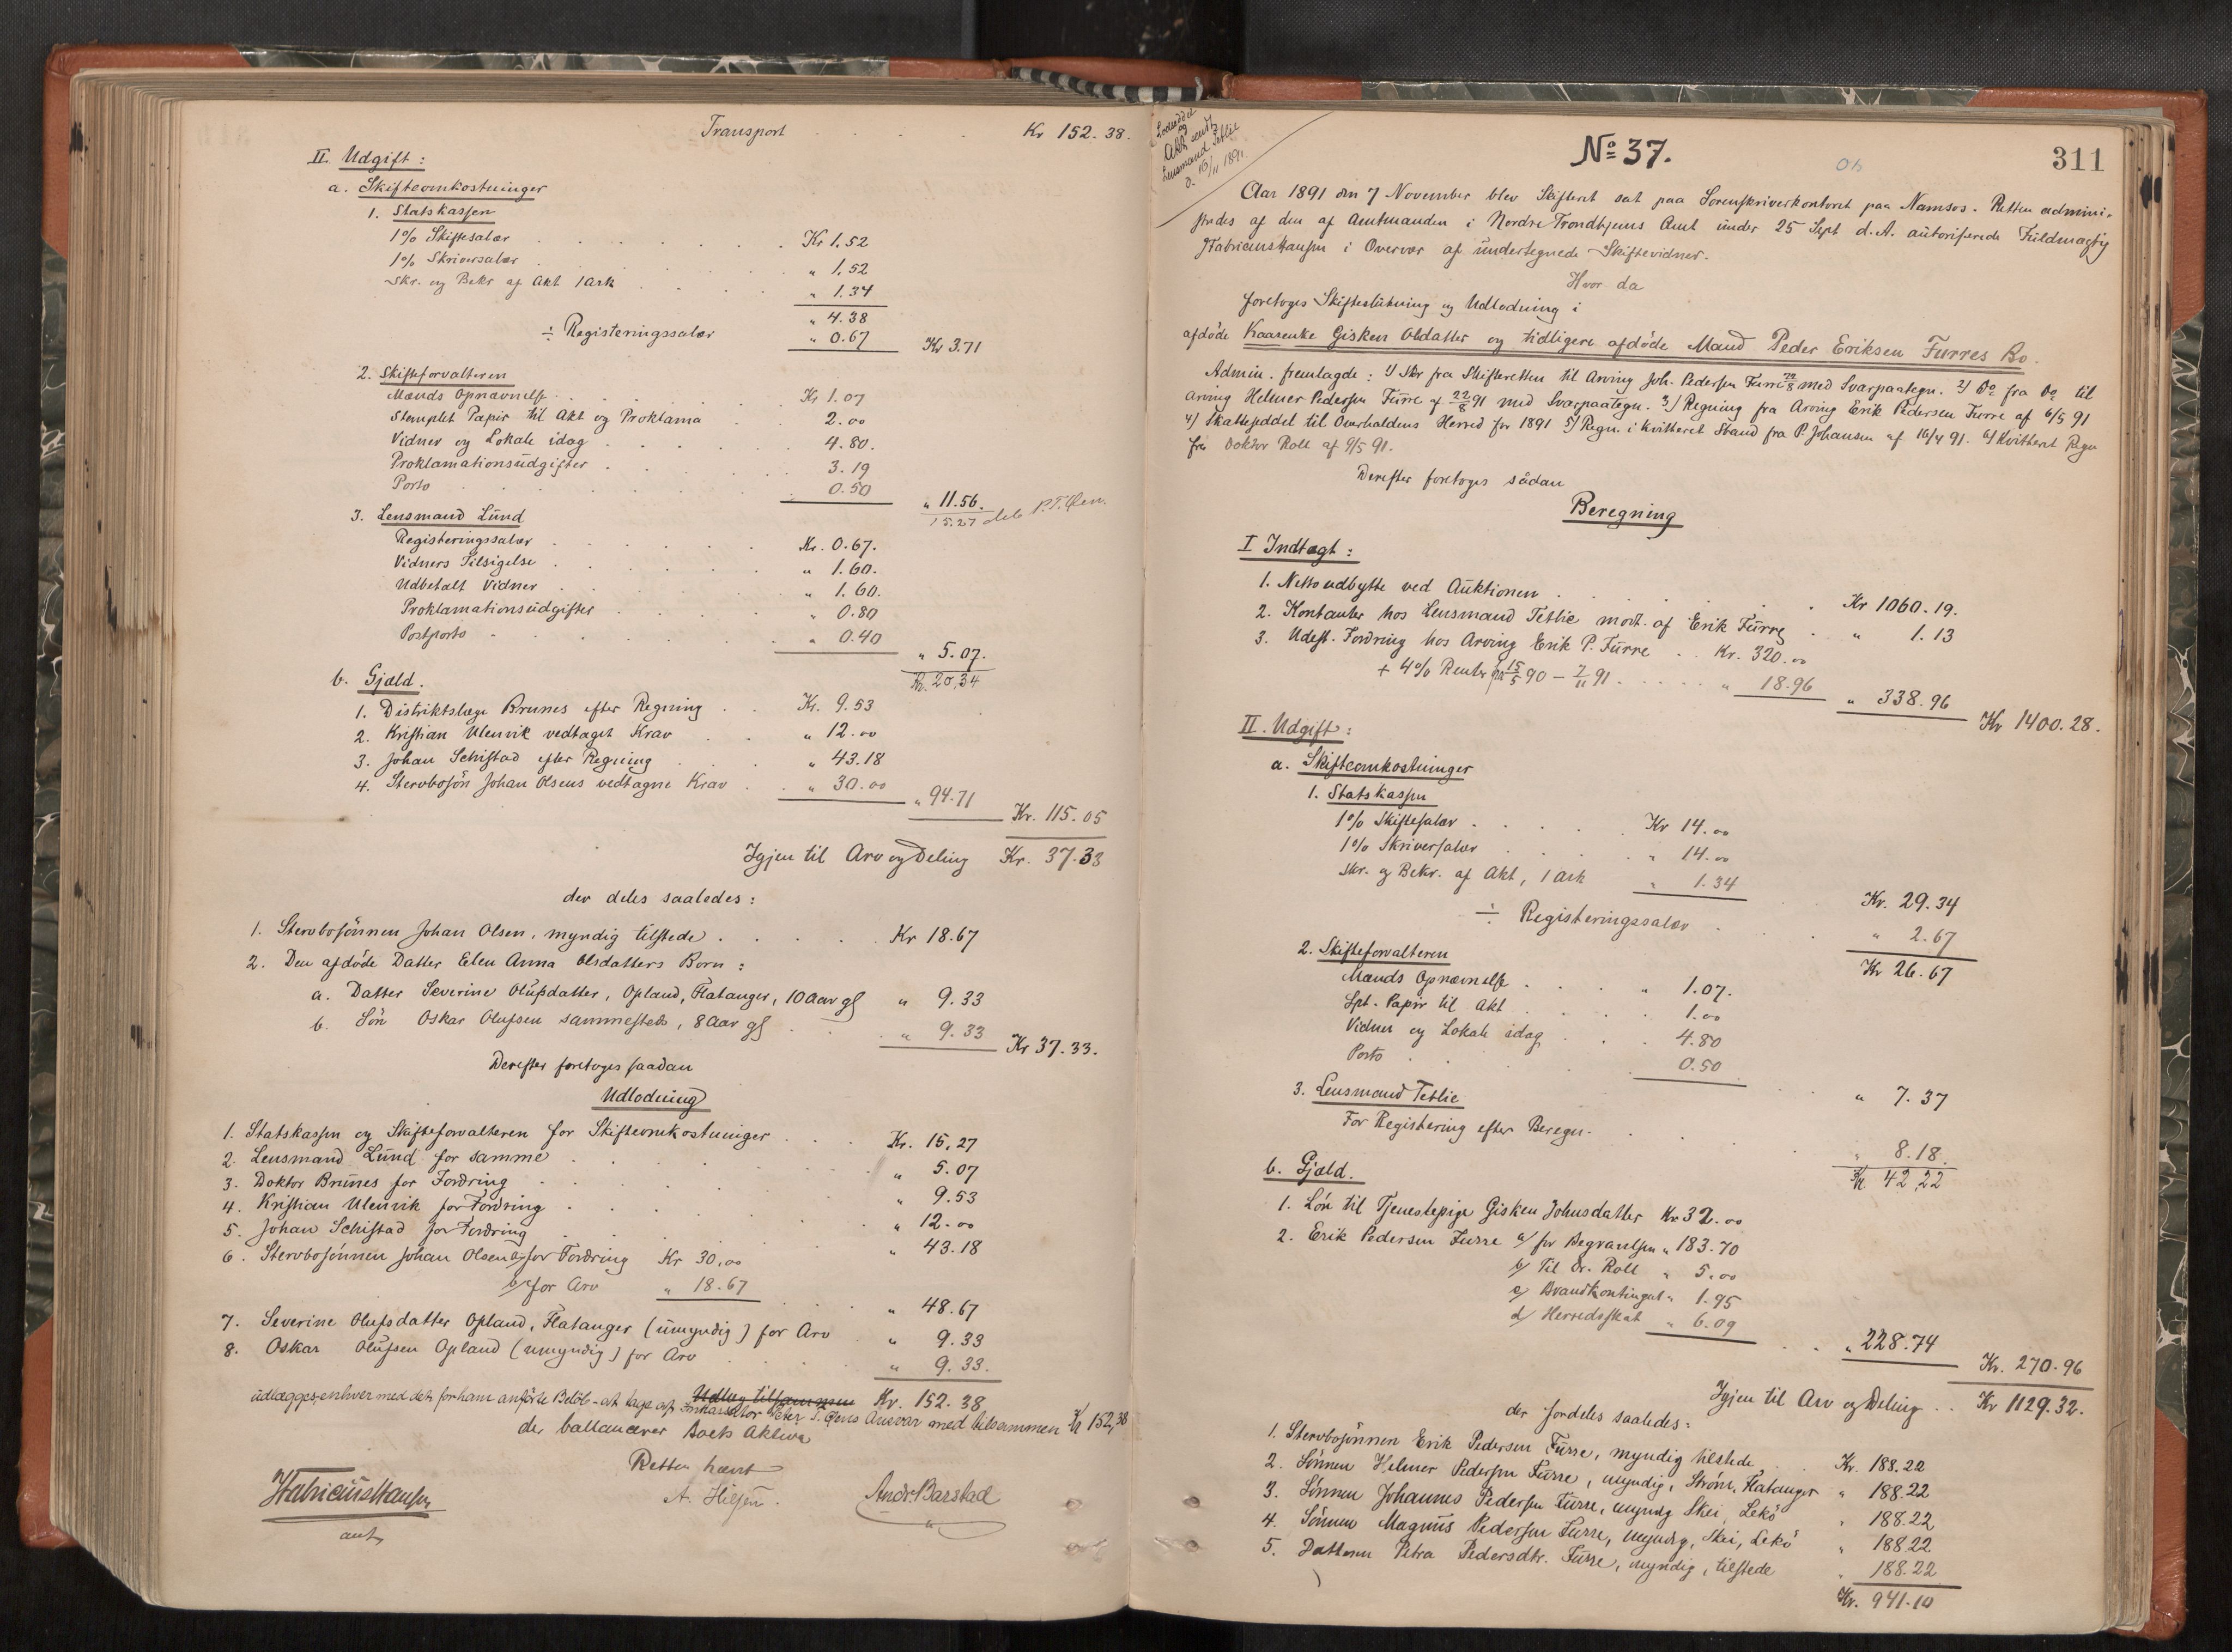 Transport Kr 152.38.
II. Udgift:
a. Skifteomkostninger
1. Statskassen
1% Skiftesalær Kr 1,52
1% Skriversalær " 1,52
Skr. og Bekr af Akt 1 Ark " 1.34
" 4.38
÷ Registeringssalær " 0.67 Kr 3.71
2. Skifteforvalteren
Mænds Opnævnelse Kr 1.07
Stemplet Papir til Akt og Proklama 2.00
Vidner og Lokale idag 4.80.
Proklamationsudgifter 3.19
Porto 0.50 " 11.56.
15.27 P.T.
3. Lensmand Lund
Registeringssalær Kr. 0.67.
Vidners Tilsigelse " 1.60.
Udbetalt Vidner " 1.60.
Proklamationsudgifter " 0.80
Postporto " 0.40 " 5.07.
Kr. 20,34
b. Gjæld.
1. Distriktslæge Brunes efter Regning Kr. 9.53
2. Kristian Ulenvik vedtaget Krav " 12.00
3. Johan Schistad efter Regning " 43.18
4. Stervbosön Johan Olsens vedtagne Krav " 30.00 " 94.71 Kr. 115.05
Igjen til Arv og Deling Kr. 37.33
der deles saaledes:
1. Stervbosönnen Johan Olsen, myndig tilstede Kr 18.67
2. Den afdöde Datter Elen Anna Olsdatters Born:
a. Datter Severine Olufsdatter, Opland, Flatanger, 10 Aar gl " 9.33
b. Sön Oskar Olufsen sammesteds, 8 Aar gl " 9.33 Kr 37.33.
Derefter foretoges saadan
Udlodning
1. Statskassen og Skifteforvalteren for Skifteomkostninger Kr. 15,27
2. Lensmand Lund for samme " 5.07
3. Doktor Brunes for Fordring " 9.53
4. Kristian Ulenvik for Fordring " 12.00
5. Johan Schistad for Fordring " 43.18
6. Stervbosönnen Johan Olsen a/ for Fordring Kr 30,00
b/ for Arv " 18.67 " 48.67
7. Severine Olufsdatter Opland, Flatanger (umyndig) for Arv " 9.33
8. Oskar Olufsen Opland (umyndig) for Arv " 9.33.
Udlæg tilsammen Kr. 152.38
udlægges enhver med det for ham anförte Belöb - at tage af Inkassator Peter T. Ansvar med tilsammen Kr 152,38
der ballancerer Boets Aktiva
Retten hævet
Fabricius Hansen A. Hilsen. Andr. Barstad
aut
Lodseddel
og
Akt sendt
Lensmand Tetlie
d. 10/11 1891.
No 37.
311
Aar 1891 den 7 November blev Skifteret sat paa Sorenskriverkontoret paa Namsos. Retten admini-
stredes af den af Amtmanden i Nordre Trondhjems Amt under 25 Sept d.A. autoriserede Fuldmægtig
Fabricius Hansen i Overvær af undertegnede Skiftevidner.
Hvor da
foretoges Skifteslutning og Udlodning i
afdöde Kaarenke Gisken Olsdatter og tidligere afdöde Mand Peder Eriksen Furres Bo.
Admin. fremlagde: 1/ Skr fra Skifteretten til Arving Joh. Pedersen Furre 22/8 med Svarpaategn. 2/ Do fra Do til
Arving Helmer Pedersen Furre af 22/8 91 med Svarpaategn. 3/ Regning fra Arving Erik Pedersen Furre af 6/5 91
4/ Skatteseddel til Overhaldens Herred for 1891 5/ Regn. i kvitteret Stand fra P. Johansen af 16/4 91. 6/ Kvitteret Regn
fra Doktor Roll af 9/5 91.
Derefter foretoges sådan
Beregning
I Indtægt:
1. Nettoudbytte ved Auktionen Kr 1060.19.
2. Kontanter hos Lensmand Tetlie modt. af Erik Furre " 1.13
3. Udest. Fordring hos Arving Erik P. Furre Kr. 320.00
+ 4% Renter fra 15/5 90 - 7/11 91 " 18.96 " 338.96 Kr 1400.28.
II. Udgift:
a. Skifteomkostninger
1. Statskassen
1% Skiftesalær Kr 14.00
1% Skriversalær " 14.00
Skr. og Bekr. af Akt, 1 Ark " 1.34 Kr. 29.34
÷ Registeringssalær " 2.67
Kr 26.67
2. Skifteforvalteren
Mænds Opnævnelse " 1.07.
Spt. Papir til Akt 1.00
Vidner og Lokale idag 4.80
Porto 0.50 " 7.37
3. Lensmand Tetlie
For Registering efter Beregn. " 8.18.
Kr 42,22
b. Gjæld.
1. Lön til Tjenestepige Gisken Johnsdatter Kr 32.00
2. Erik Pedersen Furre a/ for Begravelsen " 183.70
b/ Til Dr. Roll " 5.00
c/ Brandkontingent " 1.95
d/ Herredsskat " 6.09 " 228.74 Kr. 270.96
Igjen til Arv og Deling Kr 1129.32.
der fordeles saaledes:
1. Stervbosönnen Erik Pedersen Furre, myndig tilstede Kr. 188.22
2. Sönnen Helmer Pedersen Furre, myndig, Ström, Flatanger " 188.22
3. Sönnen Johannes Pedersen Furre, myndig Skei, Lekö " 188.22
4. Sönnen Magnus Pedersen Furre, myndig, Skei, Lekö " 188.22
5. Datteren Petra Pedersdtr. Furre, myndig, tilstede " 188.22
Kr. 941.10